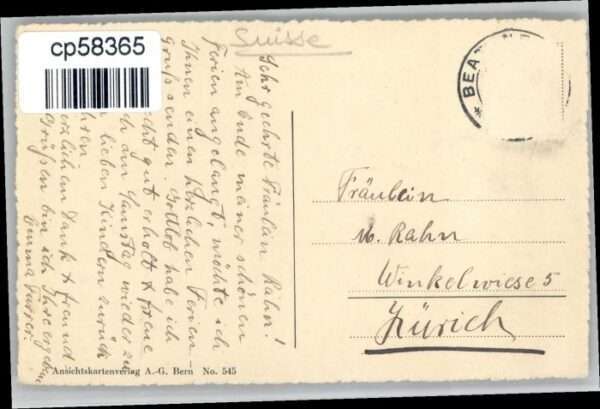 cp58365
Suisse
BEA
Sehr geehrte Fräulein Rahn!
Am Ende meiner schönen
Ferien angelangt, möchte ich
Ihnen einen herzlichen Ferien-
gruß senden. Gottlob habe ich
recht gut erholt & freue
am Samstag wieder zu
lieben Kindern zurück
Dank & freund
Grüßen bin ich Ihre
Emma Furrer.
Fräulein
M. Rahn
Winkelwiese 5
Zürich
Ansichtskartenverlag A.-G. Bern No. 545